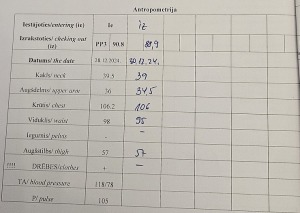 Antropometrija
Iestājoties/entering (iz) Ie iz
Izrakstoties/ cheking out (iz) PP3 90.8 89,9
Datums/ the date 28.12.2024. 30.12.24.
Kakls/ neck 39.5 39
Augšdelms/ upper arm 36 34,5
Krūtis/ chest 106.2 106
Viduklis/ waist 98 95
Iegurnis/ pelvis - -
Augšstilbs/ thigh 57 57
!!!! DRĒBES/clothes + -
TA/ blood pressure 118/78
P/ pulse 105